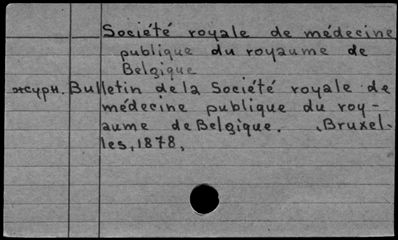 Société royale de médecine
publique du royaume de
Belgique
журн. Bulletin de la Société royale de
médecine publique du roy-
aume de Belgique. Bruxel-
les, 1878,